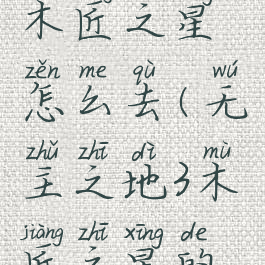 木匠之星
zěn me qù wú
怎么去(无
zhǔ zhī dì mù
主之地3木
jiàng zhī xīng de
匠之星的